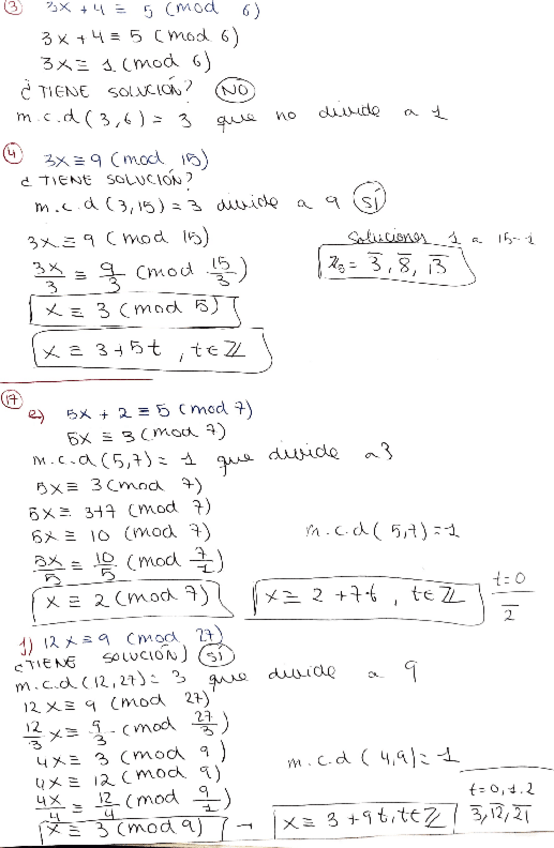 ③ 3x + 4 ≡ 5 (mod 6)
3x + 4 ≡ 5 (mod 6)
3x ≡ 1 (mod 6)
¿TIENE SOLUCIÓN? NO
m.c.d (3,6) = 3 que no divide a 1
④ 3x ≡ 9 (mod 15)
¿TIENE SOLUCIÓN?
m.c.d (3,15) = 3 divide a 9 SÍ
3x ≡ 9 (mod 15)
3x/3 ≡ 9/3 (mod 15/3)
x ≡ 3 (mod 5)
x ≡ 3+5t , t∈ℤ
Soluciones 1 a 15-1
= 3̅, 8̅, 1̅3̅
⑰
e) 5x + 2 ≡ 5 (mod 7)
5x ≡ 3 (mod 7)
m.c.d (5,7) = 1 que divide a 3
5x ≡ 3 (mod 7)
5x ≡ 3+7 (mod 7)
5x ≡ 10 (mod 7)
m.c.d (5,7) = 1
5x/5 ≡ 10/5 (mod 7/1)
x ≡ 2 (mod 7)
x ≡ 2 + 7t , t∈ℤ
t=0
2̅
f) 12x ≡ 9 (mod 27)
¿TIENE SOLUCIÓN) SÍ
m.c.d (12,27) = 3 que divide a 9
12x ≡ 9 (mod 27)
12/3 x ≡ 9/3 (mod 27/3)
4x ≡ 3 (mod 9)
4x ≡ 12 (mod 9)
m.c.d (4,9) = 1
4x/4 ≡ 12/4 (mod 9/1)
x ≡ 3 (mod 9) → x ≡ 3 + 9t, t∈ℤ
t=0,1,2
3̅, 1̅2̅, 2̅1̅